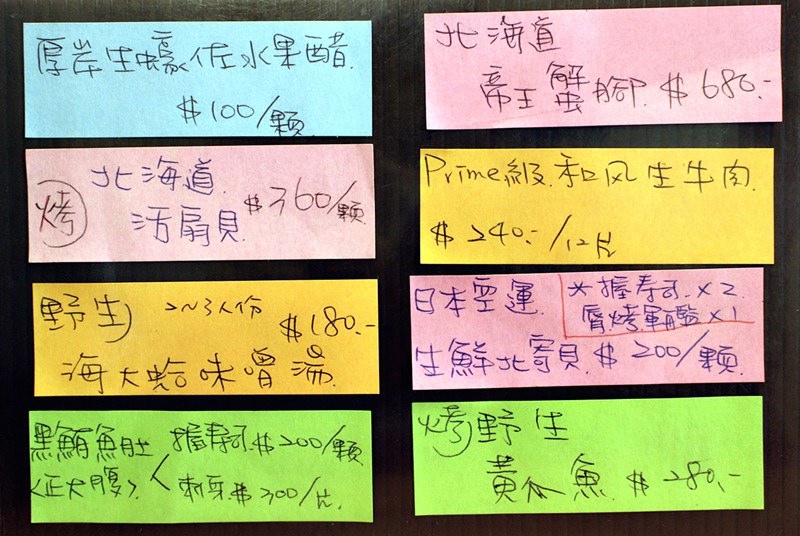 厚岸生蠔佐水果醋.
$100/顆.
烤 北海道.
活扇貝 $360/顆.
野生 2~3人份 $180.-
海大蛤味噌湯.
黑鮪魚肚 握壽司.$200/顆.
<正大腹>. < 刺身.$300/片.
北海道
帝王蟹腳. $680.-
Prime級.和风生牛肉.
$240.-/12片
日本空運 *握壽司.×2
唇烤軍艦×1
生鮮北寄貝.$200/顆.
烤 野生
黃瓜魚. $280.-